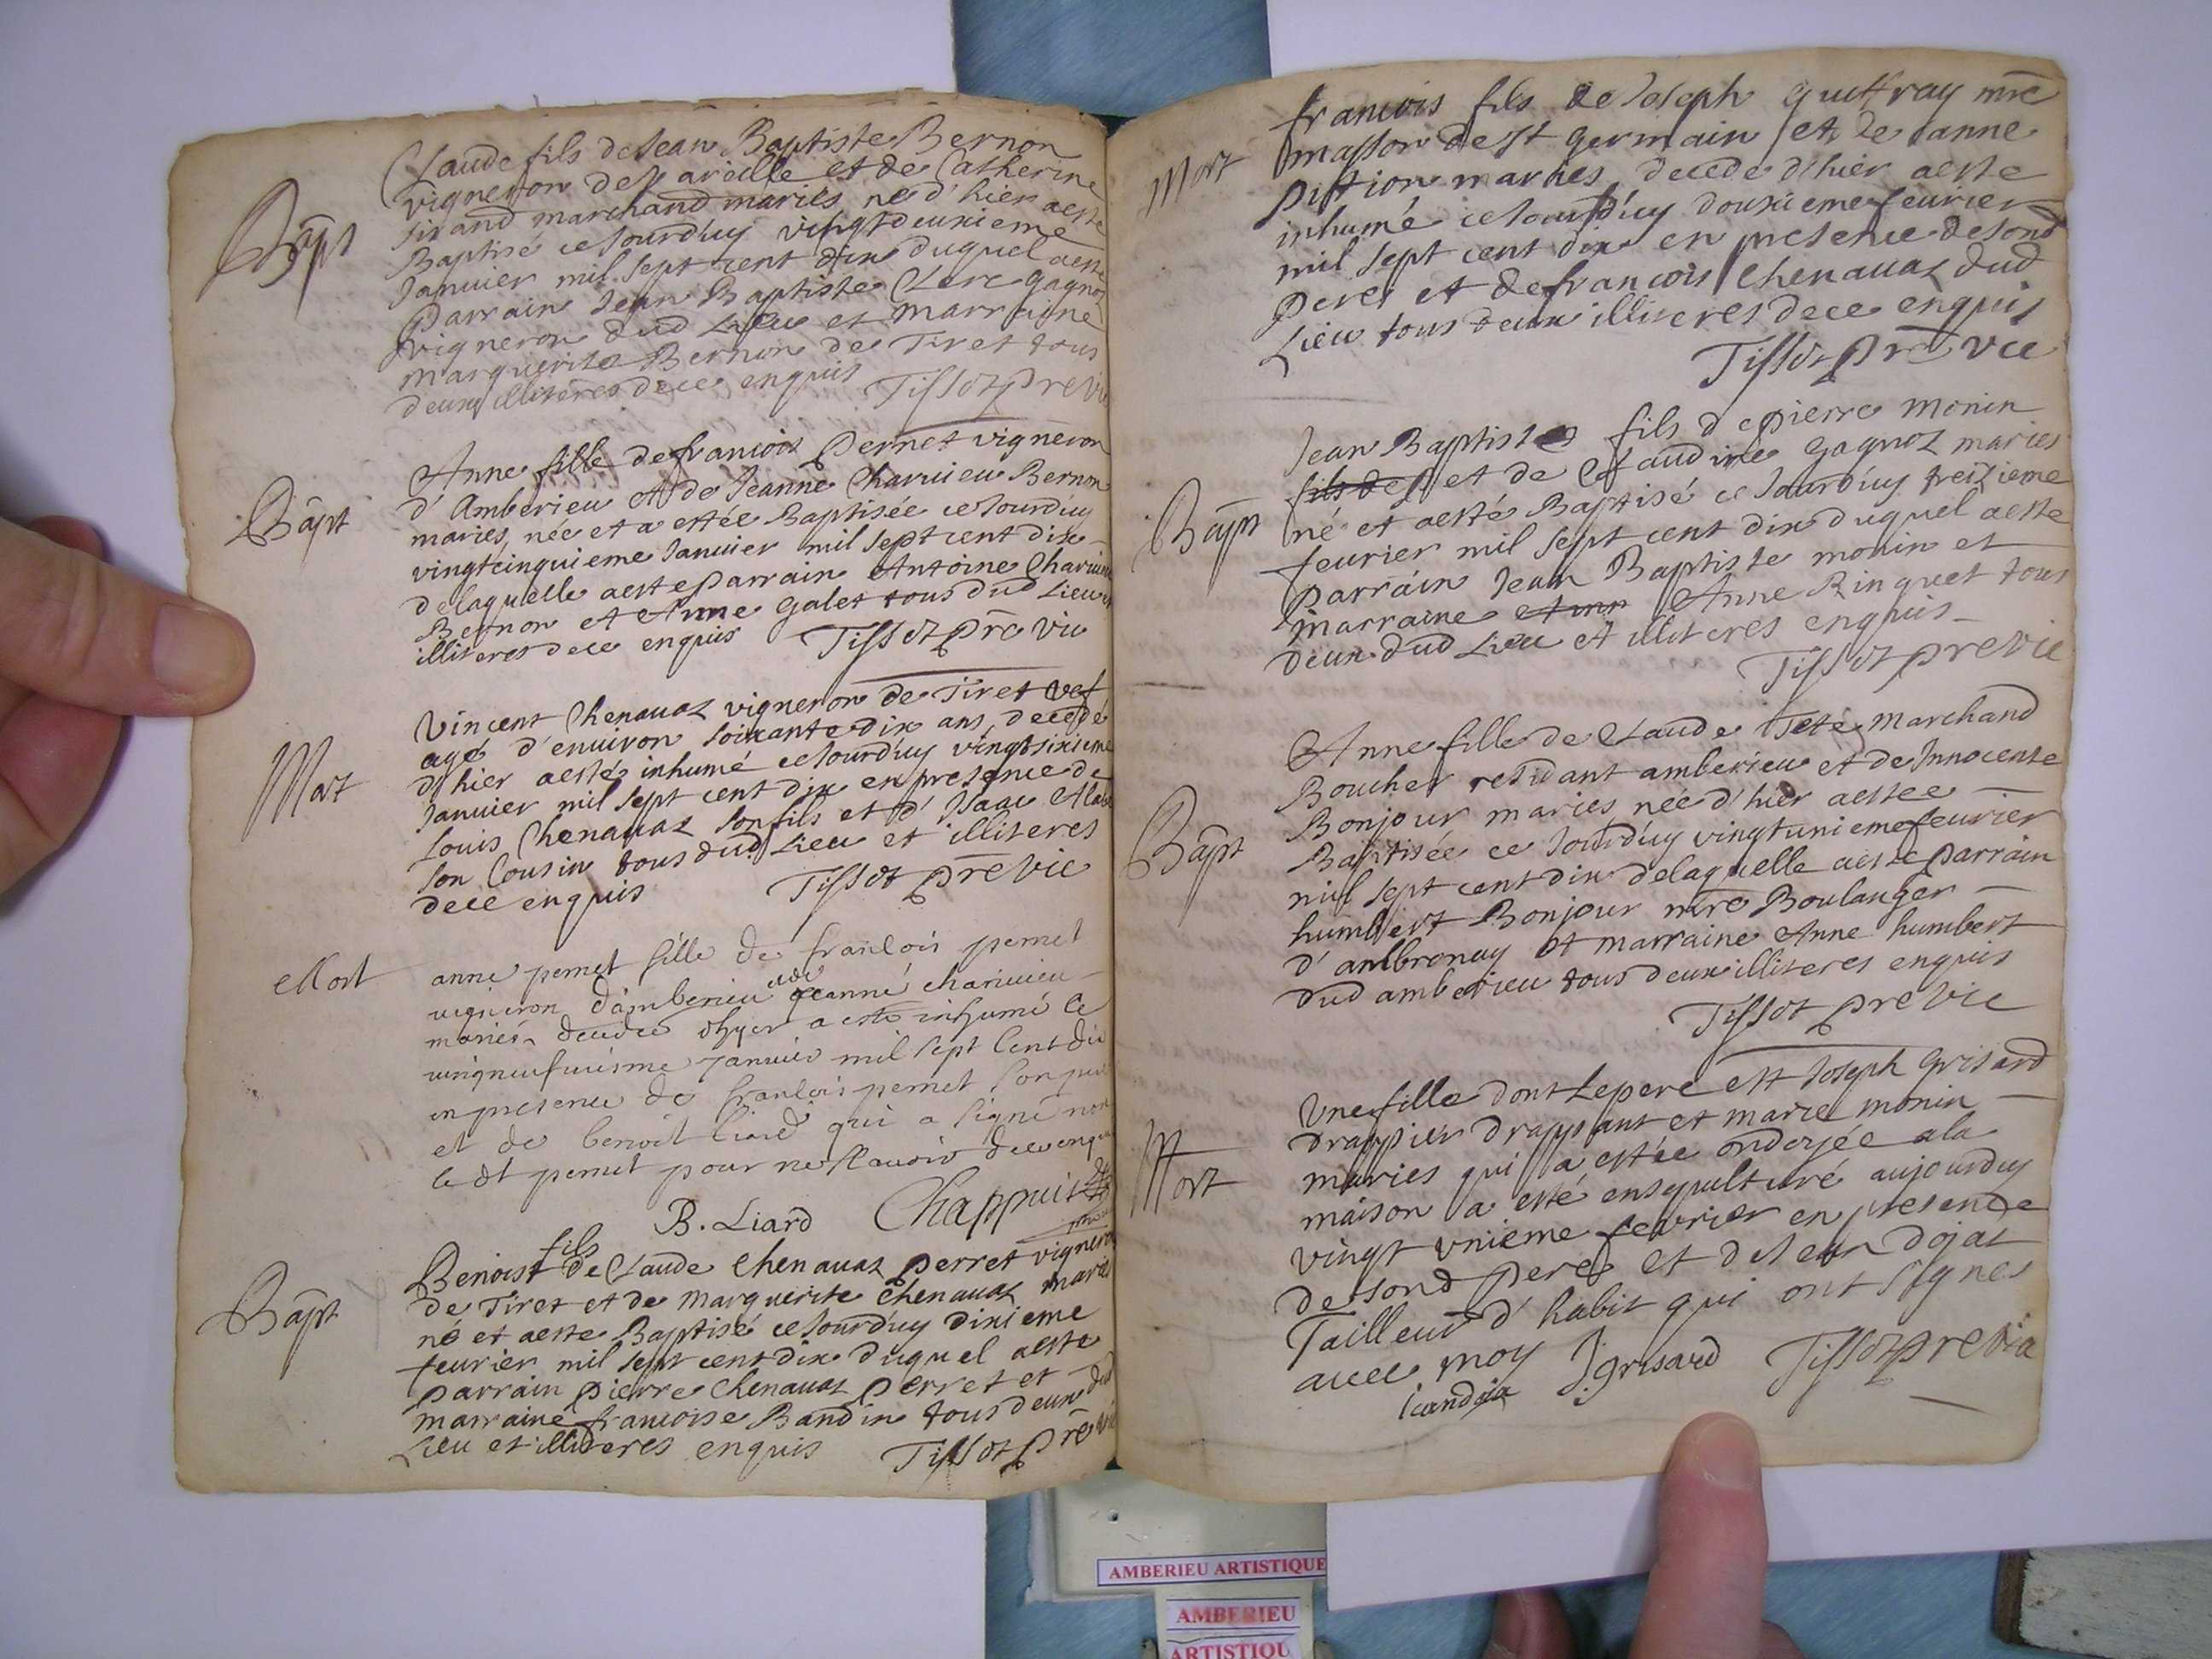 Bapt
Claude fils de Jean Baptiste Bernon
vigneron de Vareille et de Catherine
Sirand marchand mariés, né d'hier aesté
Baptisé ce Jourd'uy vingtdeuxieme
Janvier mil sept cent dix duquel aesté
Parrain Jean Baptiste Clerc Gagnoz
vigneron dud Lieu et marraine
Marguerite Bernon de Tiret tous
deux illiteres de ce enquis Tissot pre vic
Bapt
Anne fille de francois Pernet vigneron
d'Amberieu et de Jeanne Charuieu Bernon
mariés, née et a estée Baptisée ce Jourd'uy
vingtcinquieme Januier mil sept cent dix
delaquelle aeste parrain Antoine Charuieu
Bernon et Anne Galet tous dud Lieu et
illiteres de ce enquis Tissot pre vic
Mort
Vincent Chenauaz vigneron de Tiret vef
agé d'enuiron soixante dix ans, decedé
d'hier aesté inhumé ce Jourd'uy vingtsixieme
Januier mil sept cent dix en presence de
Louis Chenauaz son fils et d'Isaac
son Cousin tous dud Lieu et illiteres
de ce enquis Tissot pre vic
Mort
anne pernet fille de francois pernet
uigneron d'amberieu et de jeanne charuieu
mariés decedee dhyer a esté inhumé le
uingneufuiesme januier mil sept cent dix
en presence de francois pernet son pere
et de benoit liard qui a signé non
le dt pernet pour ne scauoir de ce enquis
B. Liard Chappuis
Bapt
fils
Benoist de Claude Chenauaz Perret vigneron
de Tiret et de Marguerite Chenauaz mariés
né et aeste Baptisé ce Jourd'uy dixieme
feurier mil sept cent dix duquel aesté
parrain pierre Chenauaz Perret et
marraine francoise Bandin tous deux dud
Lieu et illiteres enquis Tissot pre vic
Mort
francois fils de Joseph Guiffray mre
masson de St Germain et de Janne
Pittion mariés, decedé d'hier aeste
inhumé ce Jourd'uy douxieme feurier
mil sept cent dix en presence de sond
pere et de francois Chenauaz dud
Lieu tous deux illiteres de ce enquis
Tissot pre vic
Bapt
Jean Baptiste fils de pierre Monin
fils de et de Claudine Gagnoz mariés
né et aesté Baptisé ce Jourd'uy treizieme
feurier mil sept cent dix duquel aeste
parrain Jean Baptiste monin et
marraine Ann Anne Ringuet tous
deux dud Lieu et illiteres enquis
Tissot pre vic
Bapt
Anne fille de Claude Teté Marchand
Boucher residant amberieu et de Innocente
Bonjour mariés née d'hier aestee
Baptisée ce Jourd'uy vingtunieme feurier
mil sept cent dix delaquelle aeste parrain
humbert Bonjour mre Boulanger
d'ambronay et marraine Anne humbert
dud amberieu tous deux illiteres enquis
Tissot pre vic
Mort
Une fille dont Le pere est Joseph Grisard
drappier drappant et marie monin
mariés qui a estée ondoyée a la
maison a esté ensepulturé aujourduy
vingt unieme feurier en presence
de sond pere et de Jean dojat
Tailleur d'habit qui ont signés
auec moy J. Grisard Tissot pre vic